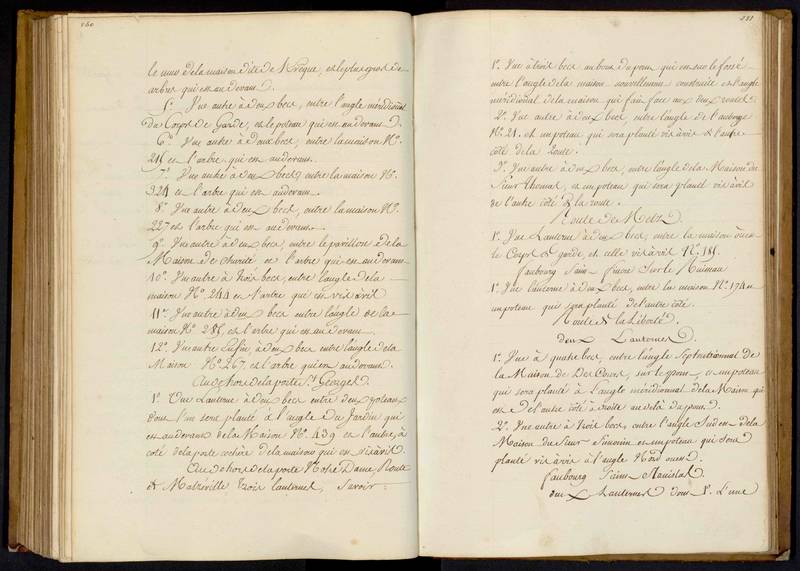 260
le mur de la maison dite de Krèque, et le plus gros de
arbres qui est au devant.
5°. Une autre à deux becs, entre l'angle méridional
du Corps de Garde, et le poteau qui est au devant.
6°. Une autre à deux becs, entre la maison N°.
215 et l'arbre qui est au devant.
7°. Une autre à deux becs, entre la maison N°.
224 et l'arbre qui est au devant.
8°. Une autre à deux becs, entre la maison N°.
227 et l'arbre qui est au devant.
9°. Une autre à deux becs, entre le pavillon de la
Maison de charité et l'arbre qui est au devant.
10°. Une autre à trois becs, entre l'angle de la
maison N°. 244 et l'arbre qui est vis à vis
11°. Une autre à deux becs entre l'angle de la
maison N°. 285, et l'arbre qui est au devant.
12°. Une autre Enfin, à deux becs entre l'angle de la
Maison N°. 267. et l'arbre qui est au devant.
Au dehors de la porte St. Georges.
1°. Une Lanterne à deux becs entre deux poteaux
dont l'un sera planté à l'angle du Jardin qui
est au devant de la Maison N°. 439 et l'autre, à
côté de la porte cochère de la maison qui est vis à vis.
Au dehors de la porte Notre Dame, Route
de Malzéville trois lanternes, Savoir :
281
1°. Une à trois becs au bout du pont qui est sur le fossé
entre l'angle de la maison nouvellement construite et l'angle
méridional de la maison qui fait face aux deux routes.
2°. Une autre à deux becs, entre l'angle de l'auberge
N°. 21. et un poteau qui sera planté vis à vis de l'autre
côté de la Route.
3°. Une autre à deux becs, entre l'angle de la Maison du
Sieur Thomas, et un poteau qui sera planté vis à vis
de l'autre côté de la route.
Route de Metz.
1°. Une Lanterne à deux becs, entre la maison
le Corps de garde, et celle vis à vis N°. 185.
Faubourg Saint Pierre Sur le Ruisseau
1°. Une lanterne à deux becs, entre la maison N°. 174 et
un poteau qui sera planté de l'autre côté.
Route de la Liberté.
deux Lanternes.
1°. Une à quatre becs, entre l'angle Septentrional de
la Maison de Des Cours, sur le pont, et un poteau
qui sera planté à l'angle méridional de la Maison qui
est de l'autre côté à droite au delà du pont.
2°. Une autre à trois becs, entre l'angle Sud est de la
Maison du Sieur Simonin et un poteau qui sera
planté vis à vis à l'angle Nord ouest.
Faubourg Saint Stanislas
deux Lanternes dont 1°. l'une